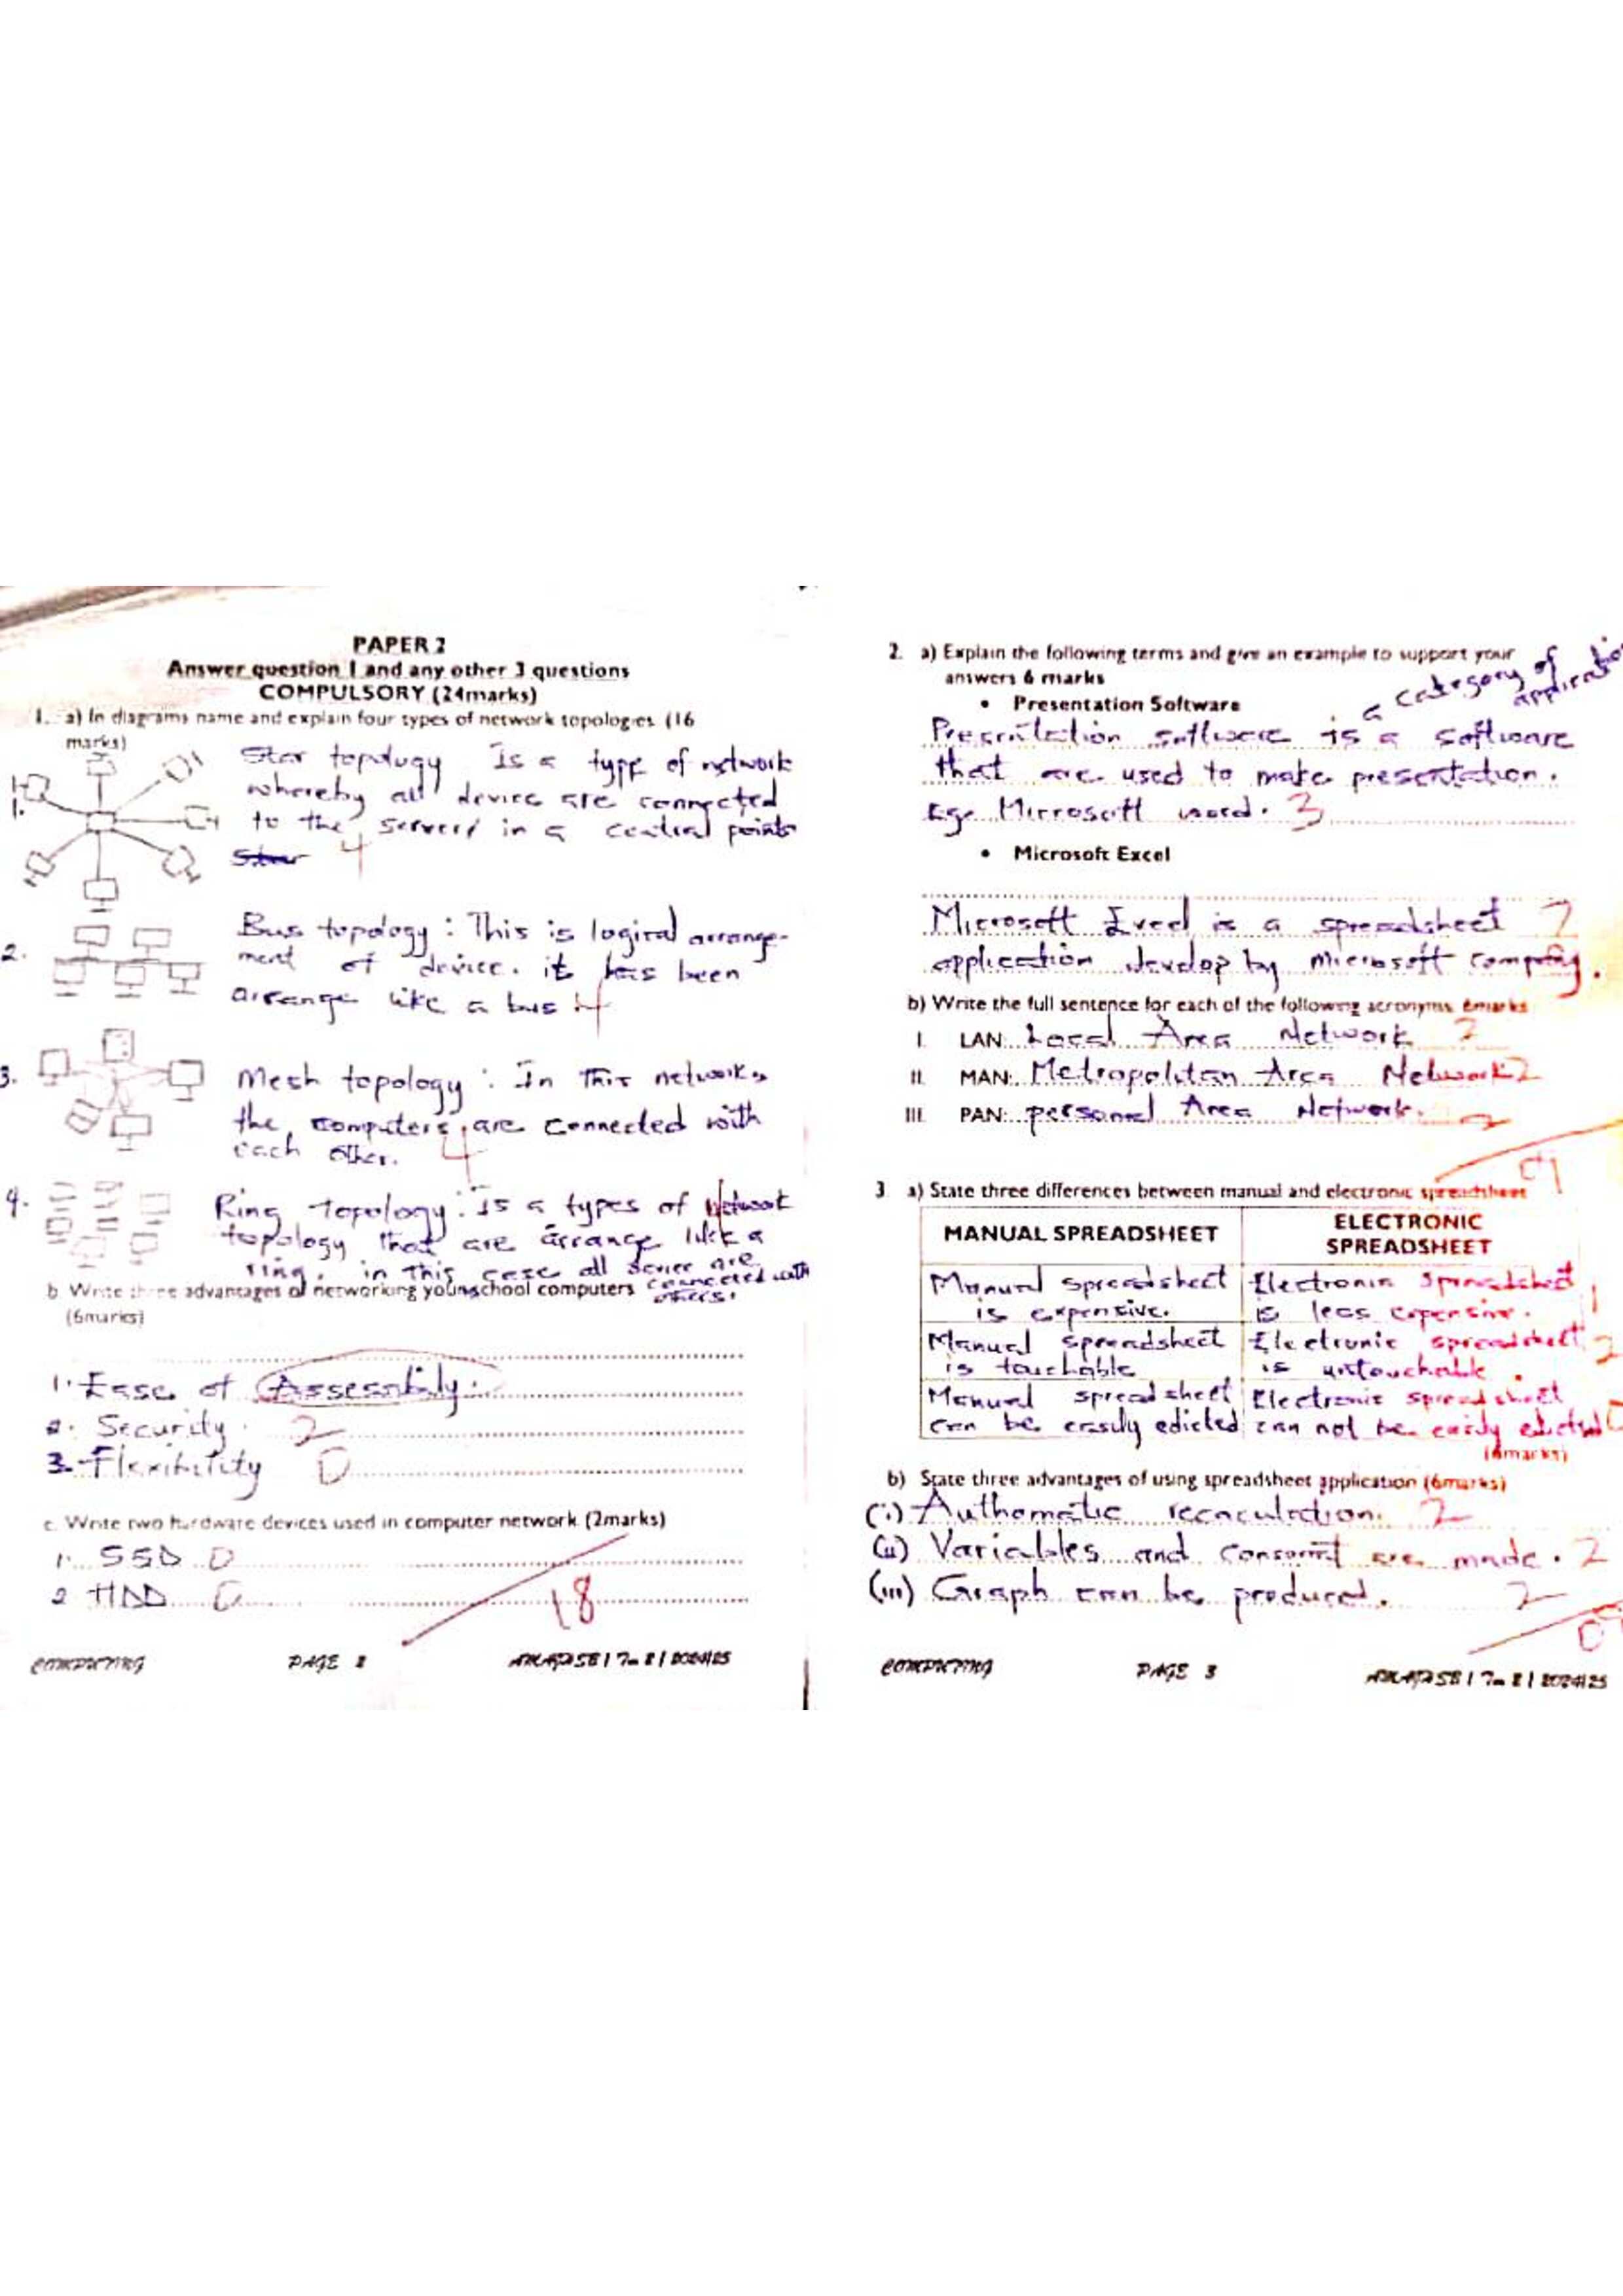 PAPER 2
Answer question 1 and any other 3 questions
COMPULSORY (24marks)
1. a) In diagrams name and explain four types of network topologies (16
marks)
1.
Star topology Is a type of network
whereby all device are connected
to the servers in a central points
4
2.
Bus topology : This is logical arrange-
ment of device. it has been
arrange like a bus 4
3.
Mesh topology : In This network,
the computers are connected with
each other. 4
4.
Ring topology: is a types of network
topology that are arrange like a
ring. in this case all device are
connected with
others.
b Write three advantages of networking your school computers
(6marks)
1. Ease of Assessbily.
2. Security 2
3. Flexibility 0
c. Write two hardware devices used in computer network (2marks)
1. SSD 0
2 HDD 0
18
COMPUTING PAGE 2
2. a) Explain the following terms and give an example to support your
answers 6 marks
• Presentation Software
a category of
Presentation software is a software
that are used to make presentation.
Eg. Mirrosoft word. 3
• Microsoft Excel
Microsoft Excel is a spreadsheet
application develop by microsoft
b) Write the full sentence for each of the following acronyms 6marks
I. LAN: Local Area Network 2
II. MAN: Metropolitan Area Network 2
III. PAN: personal Area Network. 2
3 a) State three differences between manual and electronic spreadsheet
MANUAL SPREADSHEET
ELECTRONIC
SPREADSHEET
Manual spreadsheet
is expensive.
Electronic Spreadsheet
is less expensive.
1
Manual spreadsheet
is touchable
Electronic spreadsheet
is untouchable.
2
Manual spreadsheet
can be easily edicted
Electronic spreadsheet
can not be easily edicted
(6marks)
b) State three advantages of using spreadsheet application (6marks)
(i) Authomatic recaculation. 2
(ii) Variables and are made. 2
(iii) Graph can be produced. 2
COMPUTING PAGE 3